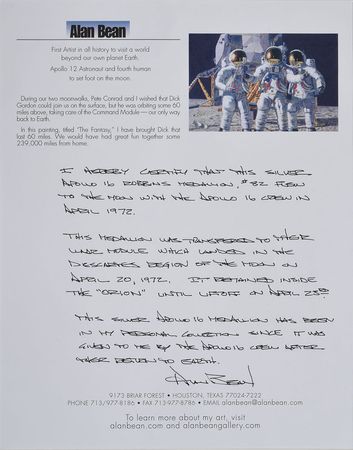 Alan Bean
First Artist in all history to visit a world
beyond our own planet Earth.
Apollo 12 Astronaut and fourth human
to set foot on the moon.
During our two moonwalks, Pete Conrad and I wished that Dick
Gordon could join us on the surface, but he was orbiting some 60
miles above, taking care of the Command Module — our only way
back to Earth.
In this painting, titled "The Fantasy," I have brought Dick that
last 60 miles. We would have had great fun together some
239,000 miles from home.
I HEREBY CERTIFY THAT THIS SILVER
APOLLO 16 ROBBINS MEDALLION, #82 FLEW
TO THE MOON WITH THE APOLLO 16 CREW IN
APRIL 1972.
THIS MEDALLION WAS TRANSFERED TO THEIR
LUNAR MODULE WHICH LANDED IN THE
DESCARTES REGION OF THE MOON ON
APRIL 20, 1972. IT REMAINED INSIDE
THE "ORION" UNTIL LIFTOFF ON APRIL 23RD
THIS SILVER APOLLO 16 MEDALLION HAS BEEN
IN MY PERSONAL COLLECTION SINCE IT WAS
GIVEN TO ME BY THE APOLLO 16 CREW AFTER
THEIR RETURN TO EARTH.
Alan Bean
9173 BRIAR FOREST • HOUSTON, TEXAS 77024-7222
PHONE 713/977-8186 • FAX 713-977-8786 • EMAIL alanbean@alanbean.com
To learn more about my art, visit
alanbean.com and alanbeangallery.com.